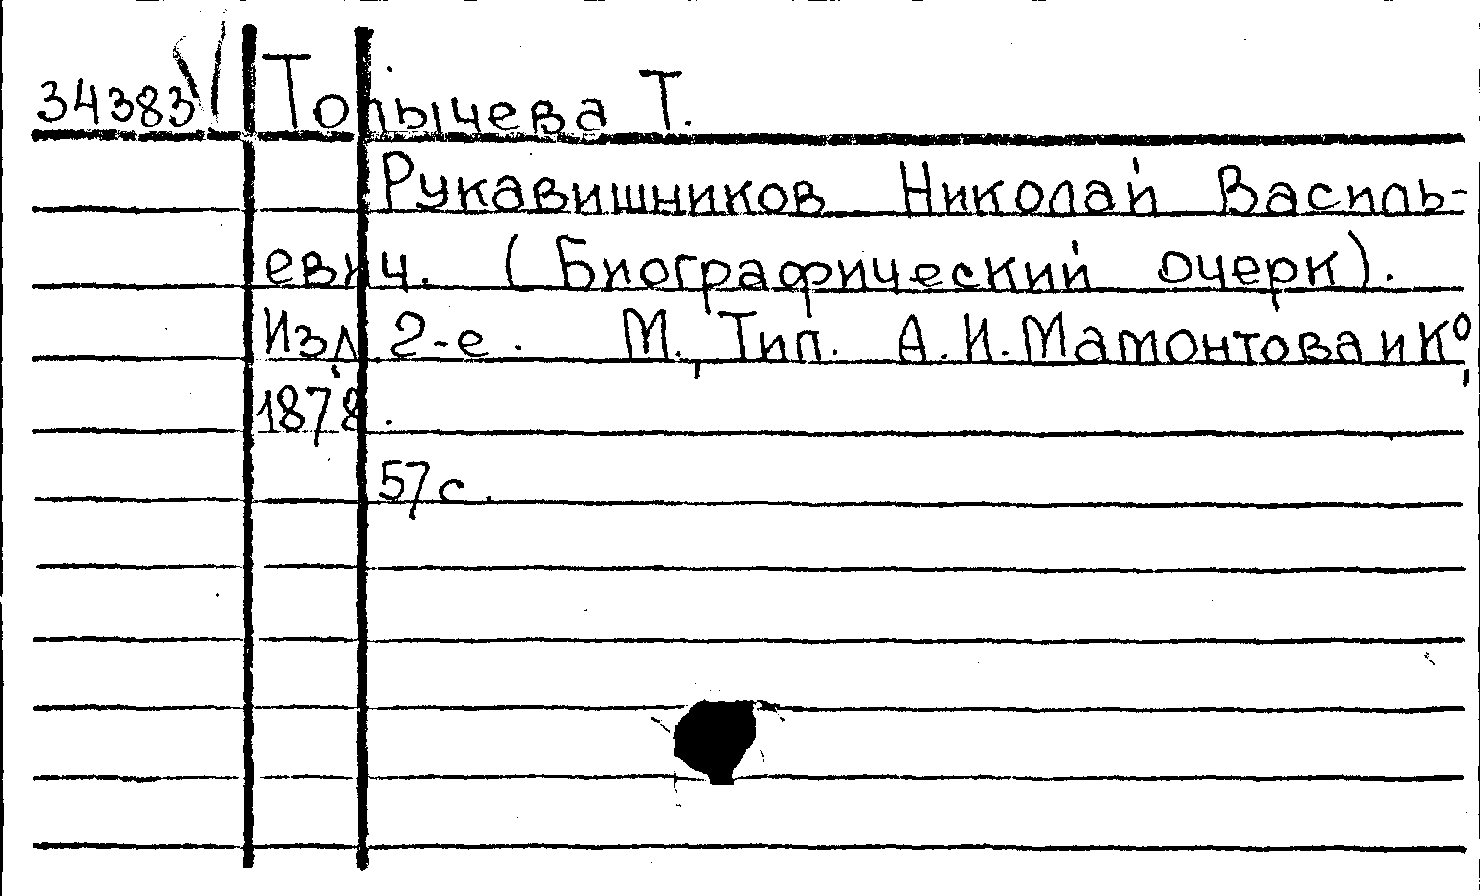 34383 Толычева Т.
Рукавишников Николай Василь-
евич. (Биографический очерк).
Изд. 2-е. М., Тип. А.И.Мамонтова и К°,
1878.
57 с.